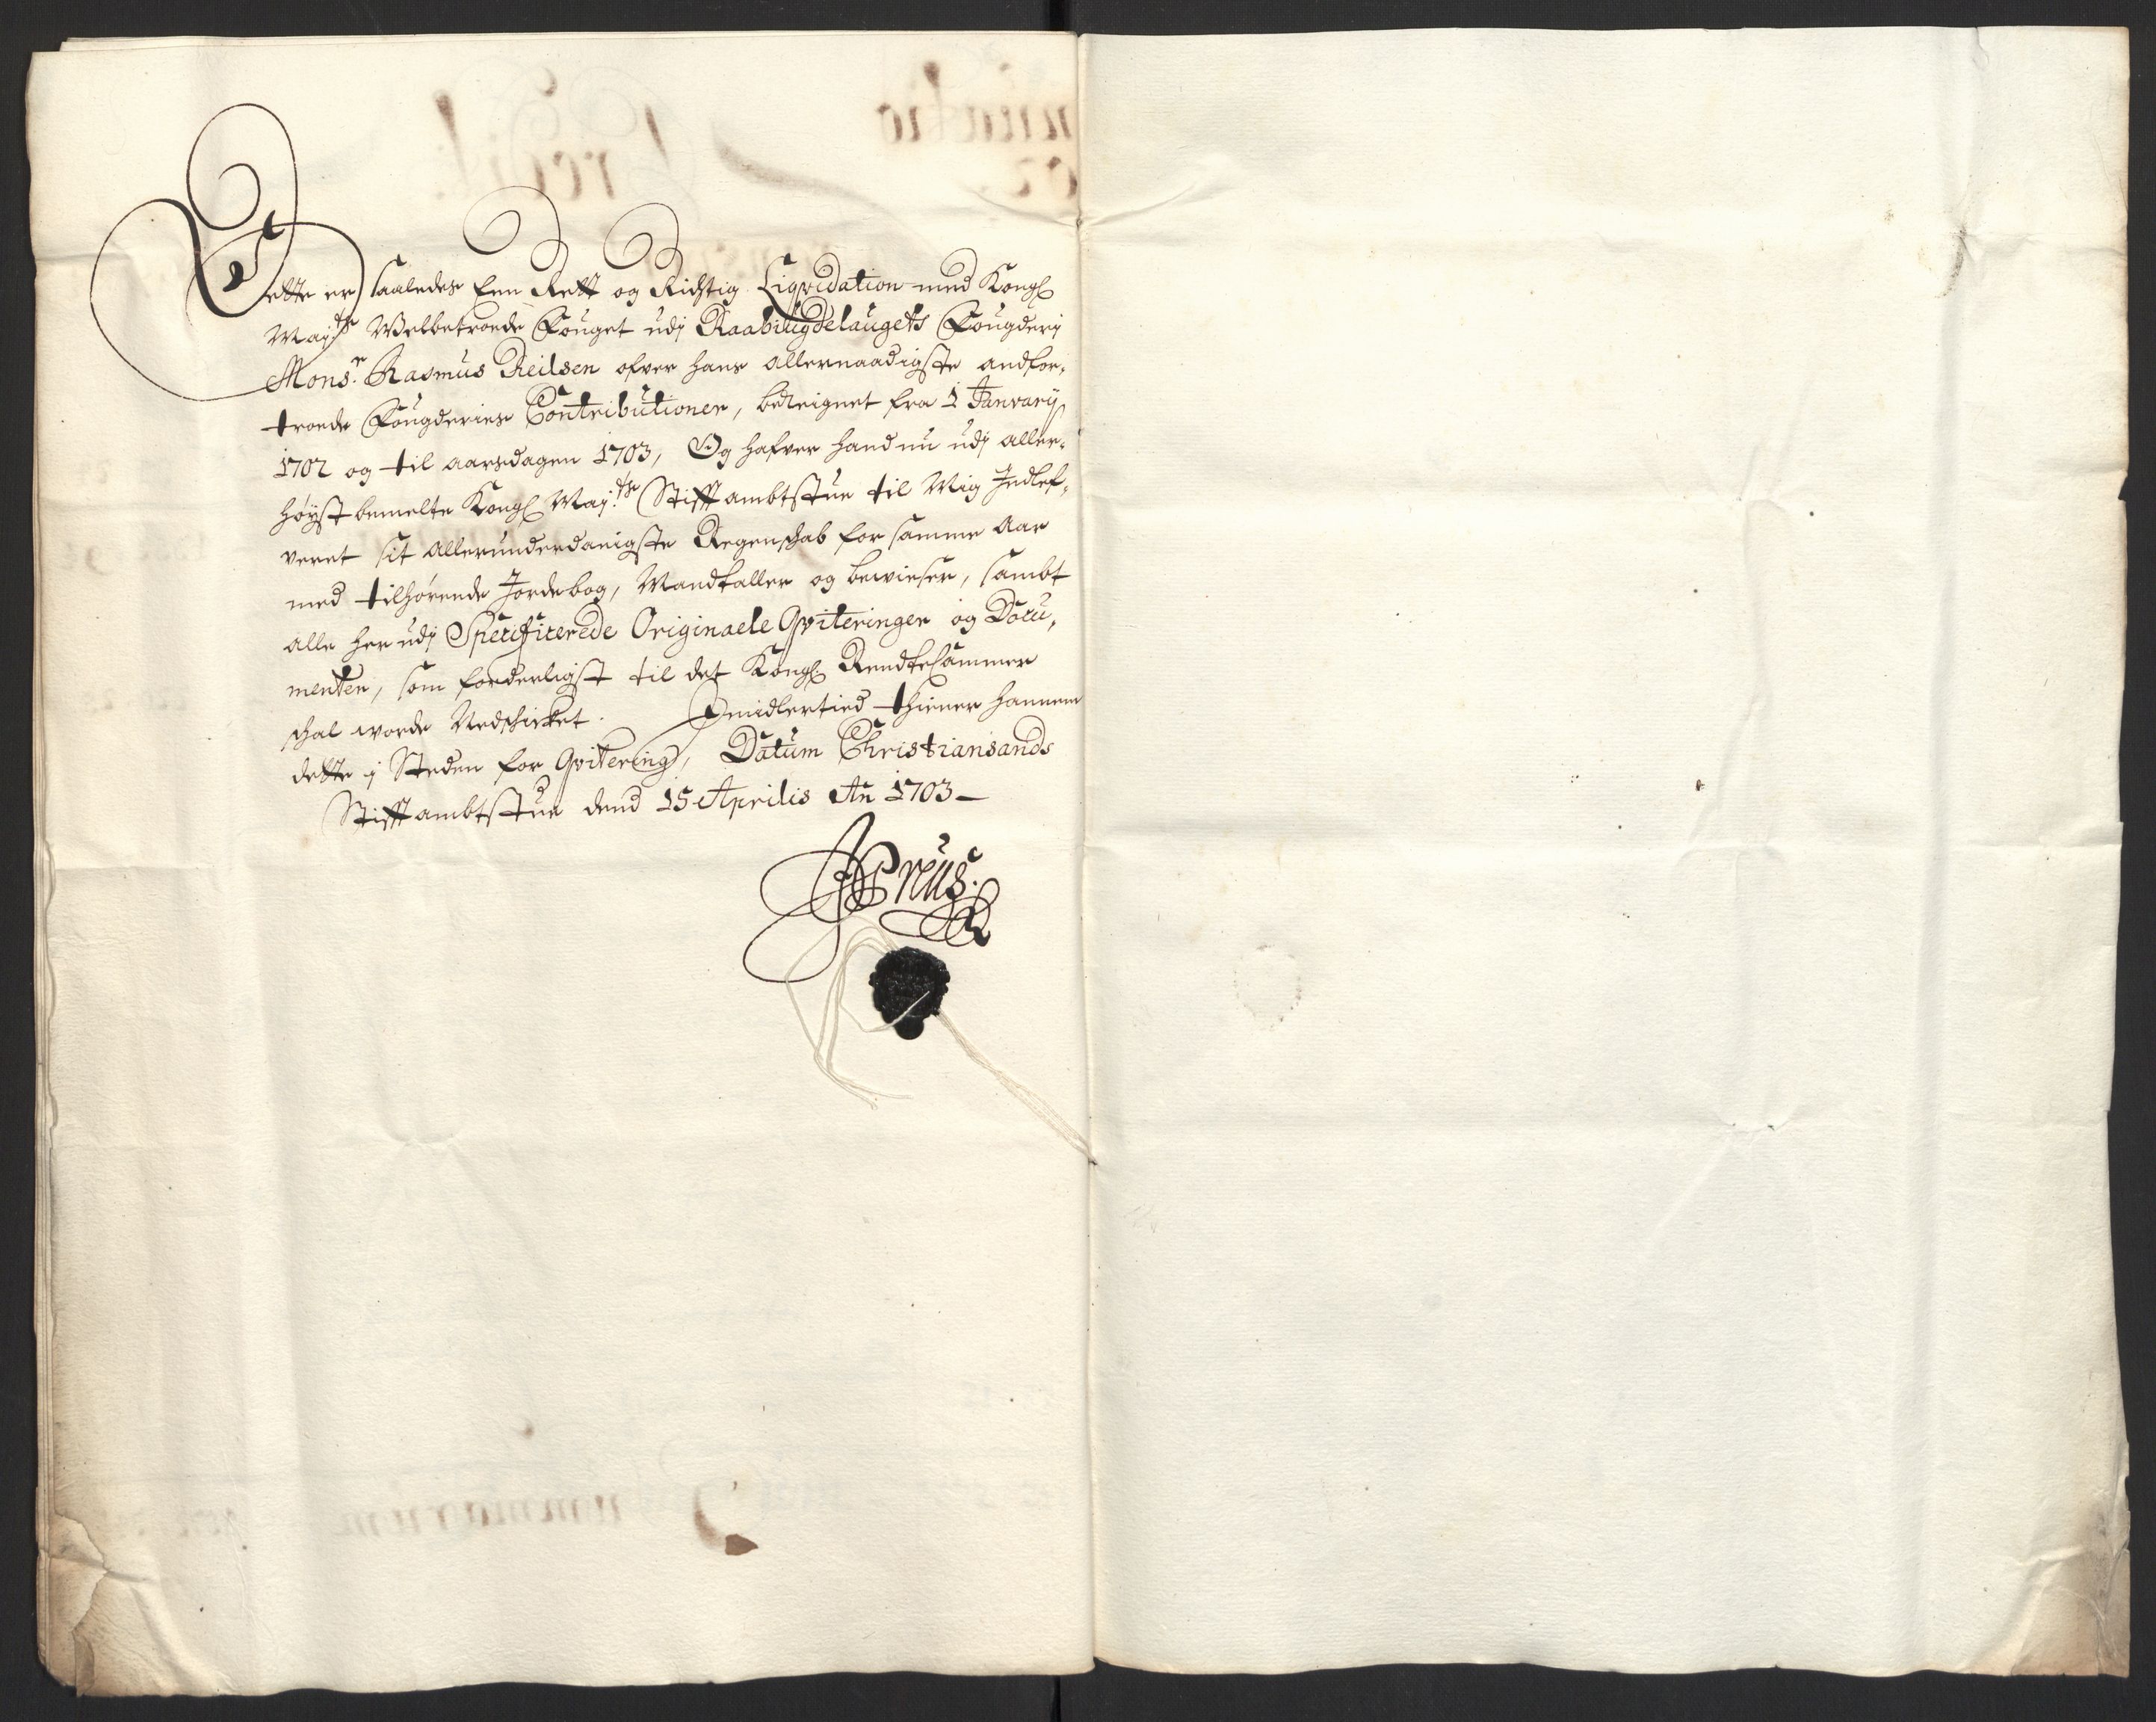 Dette er saaledes Een Rett og Richtig Liqvidation med Kongl
May:ts Welbetroede Fouget udj Raabiugdelaugets Fougderj
Mons.r Rasmus Reilsen ofver hans allernaadigste andfor-
troede Fougderies Contributioner, bereignet fra 1 Janvarij
1702 og til aarsdagen 1703, Og hafver hand nu udj aller-
høyst bemelte Kongl May:ts Stifftambtstue til Mig Indlef-
veret sit allerunderdanigste Regenschab for samme Aar
med tilhørende Jordebog, Mandtaller og bewieser, sambt
alle her udj Specificerede Originaele Qviteringer og Docu-
menter, som forderligst til det Kongl Rendtekammer
schal worde Nedschicket. Imidlertied thiener hannem
dette j Steden for Qvitering, Datum Christiansands
Stifftambtstue dend 15 Aprilis An 1703 –